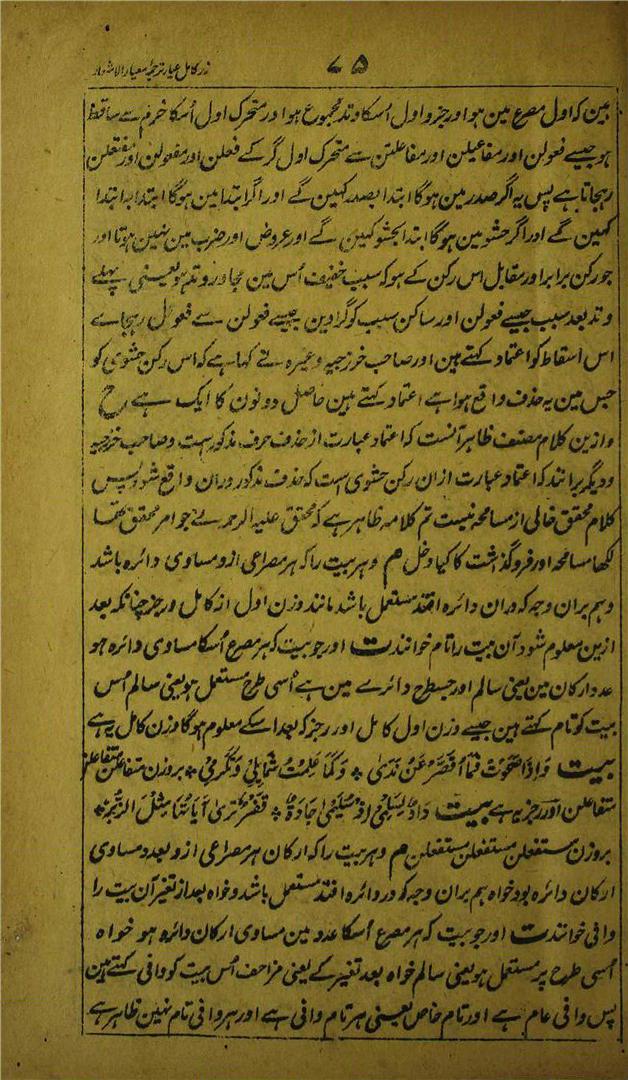 ۷۵
زر کامل عیار ترجمہ معیار الاشعار
ہین کہ اول مصرع مین ہو اور جزو اول اُسکا وتد مجموع ہو اور متحرک اول اُسکا خرم سے ساقط
ہو جیسے فعولن اور مفاعیلن اور مفاعلتن سے متحرک اول گر کے فعلن اور مفعولن اور مفتعلن
رہجاتا ہے پس یہ اگر صدر مین ہوگا ابتدا بصدر کہین گے اور اگر ابتدا مین ہوگا ابتدا بہ ابتدا
کہین گے اور اگر حشو مین ہوگا ابتدا بحشو کہین گے اور عروض اور ضرب مین نہین ہوتا اور
جو رکن برابر اور مقابل اس رکن کے ہو کہ سبب خفیف اُس مین مجاور وتد ہو یعنی پہلے
وتد بعد سبب جیسے فعولن اور ساکن سبب کو گرا دین جیسے فعولن سے فعول رہجاے
اس اسقاط کو اعتماد کہتے ہین اور صاحب خزرجیہ وغیرہ نے کہا ہے کہ اس رکن حشوی کو
جس مین یہ حذف واقع ہوا ہے اعتماد کہتے ہین حاصل دونون کا ایک ہے ح
و ازین کلام مصنف ظاہرا آنست کہ اعتماد عبارت از حذف حرف مذکور ست و صاحب خزرجیہ
و دیگر برانند کہ اعتماد عبارت ازان رکن حشوی است کہ حذف مذکور دران واقع شود پس
کلام محقق خالی از مسامحہ نیست تم کلامہ ظاہر ہے کہ محقق علیہ الرحمہ نے جو امر محقق تھا
لکھا مسامحہ اور فروگذاشت کا کیا دخل م و ہر بیت را کہ ہر مصراعی ازو مساوی دائرہ باشد
و ہم بران وجہ کہ دران دائرہ افتد مستعمل باشد مانند وزن اول از کامل و رجز چنانکہ بعد
ازین معلوم شود آن بیت را تام خوانند ت اور جو بیت کہ ہر مصرع اُسکا مساوی دائرہ ہو
عدد ارکان مین یعنی سالم اور جسطرح دائرے مین ہے اُسی طرح مستعمل ہو یعنی سالم اُس
بیت کو تام کہتے ہین جیسے وزن اول کامل اور رجز کہ بعد اسکے معلوم ہوگا وزن کامل یہ ہے
بیت وَاِذَا صَحَوْتُ فَمَا اُقَصِّرُ عَنْ نَدًى * وَكَمَا عَلِمْتِ شَمَائِلِیْ وَتَكَرُّمِیْ * بروزن متفاعلن متفاعلن
متفاعلن اور رجز یہ ہے بیت دَارٌ لِسَلْمٰی اِذْ سُلَیْمٰی جَارَةٌ * قَفْرٌ تَرٰی اٰیَاتُهَا مِثْلَ الزُّبُرْ *
بروزن مستفعلن مستفعلن مستفعلن م و ہر بیت را کہ ارکان ہر مصراعی ازو بعدد مساوی
ارکان دائرہ بود خواہ ہم بران وجہ کہ در دائرہ افتد مستعمل باشد و خواہ بعد از تغیر آن بیت را
وافی خوانند ت اور جو بیت کہ ہر مصرع اُسکا عدد مین مساوی ارکان دائرہ ہو خواہ
اُسی طرح پر مستعمل ہو یعنی سالم خواہ بعد تغیر کے یعنی مزاحف اُس بیت کو وافی کہتے ہین
پس وافی عام ہے اور تام خاص یعنی ہر تام وافی ہے اور ہر وافی تام نہین ظاہر ہے